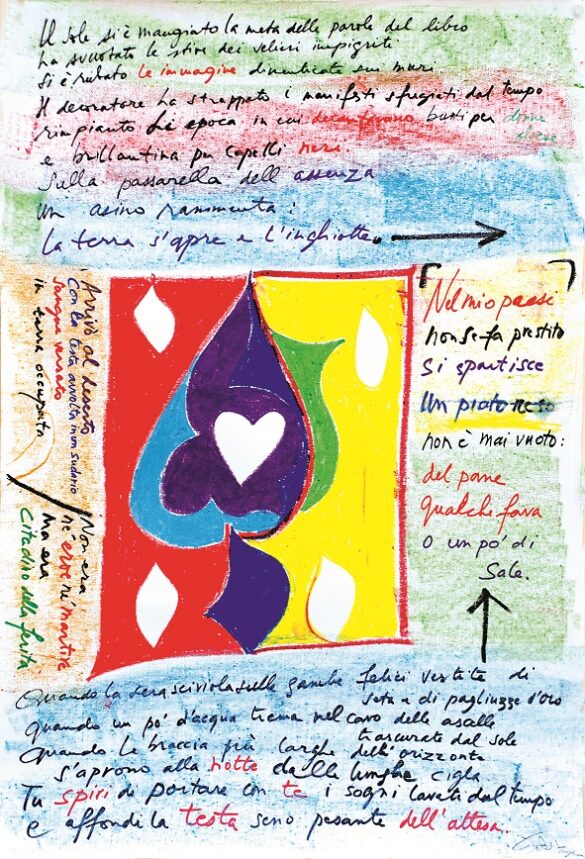 Il sole si è mangiato la meta delle parole del libro
ha svuotato le stive dei velieri impigriti
si è rubato le immagine dimenticate sui muri
Il decoratore ha strappato i manifesti sfregiati dal tempo
rimpianto di epoca in cui decantavano busti per donne
obese
e brillantina per capelli neri.
Sulla passarella dell'assenza
un asino rammenta:
la terra s'apre e l'inghiotte.
Arrivò al deserto
con la testa avvolta in un sudario
sangue versato
in terra occupata
Non era
nè eroe nè martire
ma era
cittadino alla ferita
Nel mio paese
non se fa prestito
si spartisce
Un piato reso
non è mai vuoto:
del pane
qualche fava
o un pò di
Sale.
Quando la sera scivola sulle gambe felici vestite di
seta e di pagliuzze d'oro
quando un pò d'acqua trema nel cavo delle ascelle
trascurate dal sole
Quando le braccia più larghe dell'orizzonte
s'aprono alla notte dalle lunghe ciglia
Tu spiri di portare con te i sogni lavati dal tempo
e affondi la testa seno pesante dell'attesa.